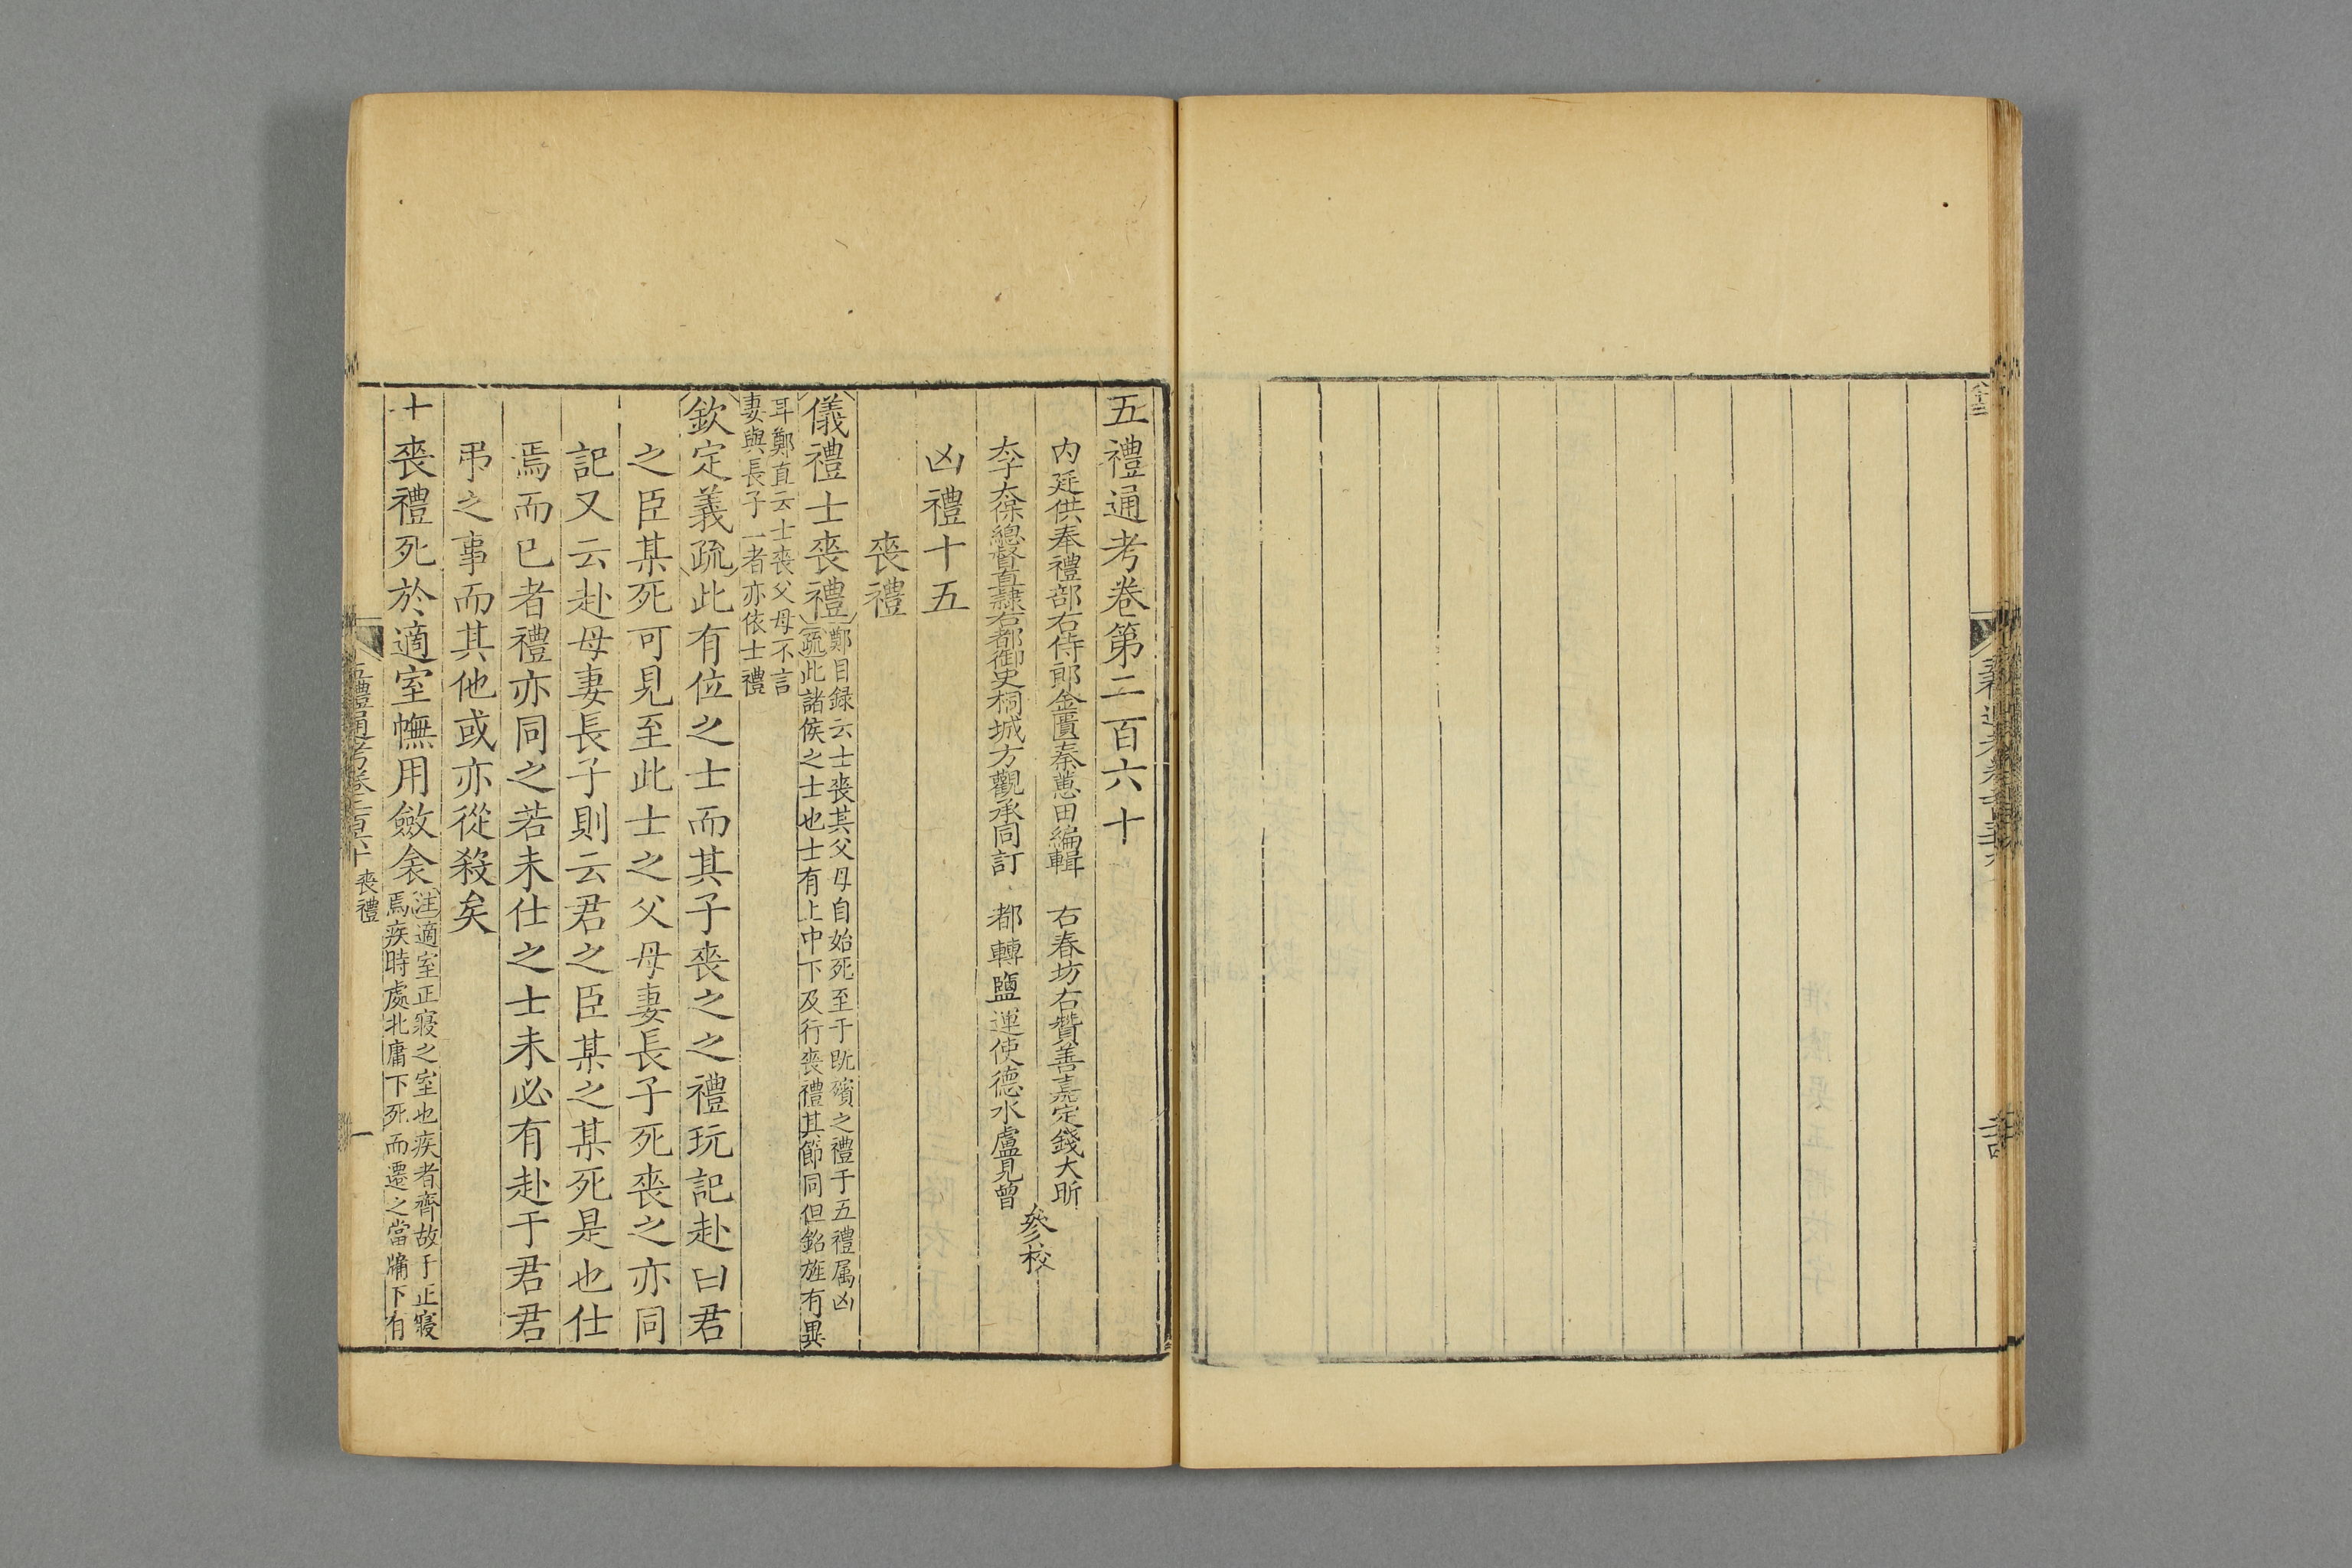 五禮通考卷第二百六十
内廷供奉禮部右侍郎金匱秦蕙田編輯　右春坊右贊善嘉定錢大昕
太子太保總督直隸右都御史桐城方觀承同訂　都轉鹽運使德水盧見曾
參校
凶禮十五
喪禮
儀禮士喪禮
鄭目録云士喪其父母自始死至于既殯之禮于五禮属凶
疏此諸侯之士也士有上中下及行喪禮其節同但銘旌有異
耳鄭直云士喪父母不言
妻與長子二者亦依士禮
欽定義疏此有位之士而其子喪之之禮玩記赴曰君
之臣某死可見至此士之父母妻長子死喪之亦同
記又云赴母妻長子則云君之臣某之某死是也仕
焉而已者禮亦同之若未仕之士未必有赴于君君
弔之事而其他或亦從殺矣
士喪禮死於適室幠用斂衾
注適室正寢之室也疾者齊故于正寢
焉疾時處北庸下死而遷之當牖下有
五禮通考卷二百六十 喪禮
一